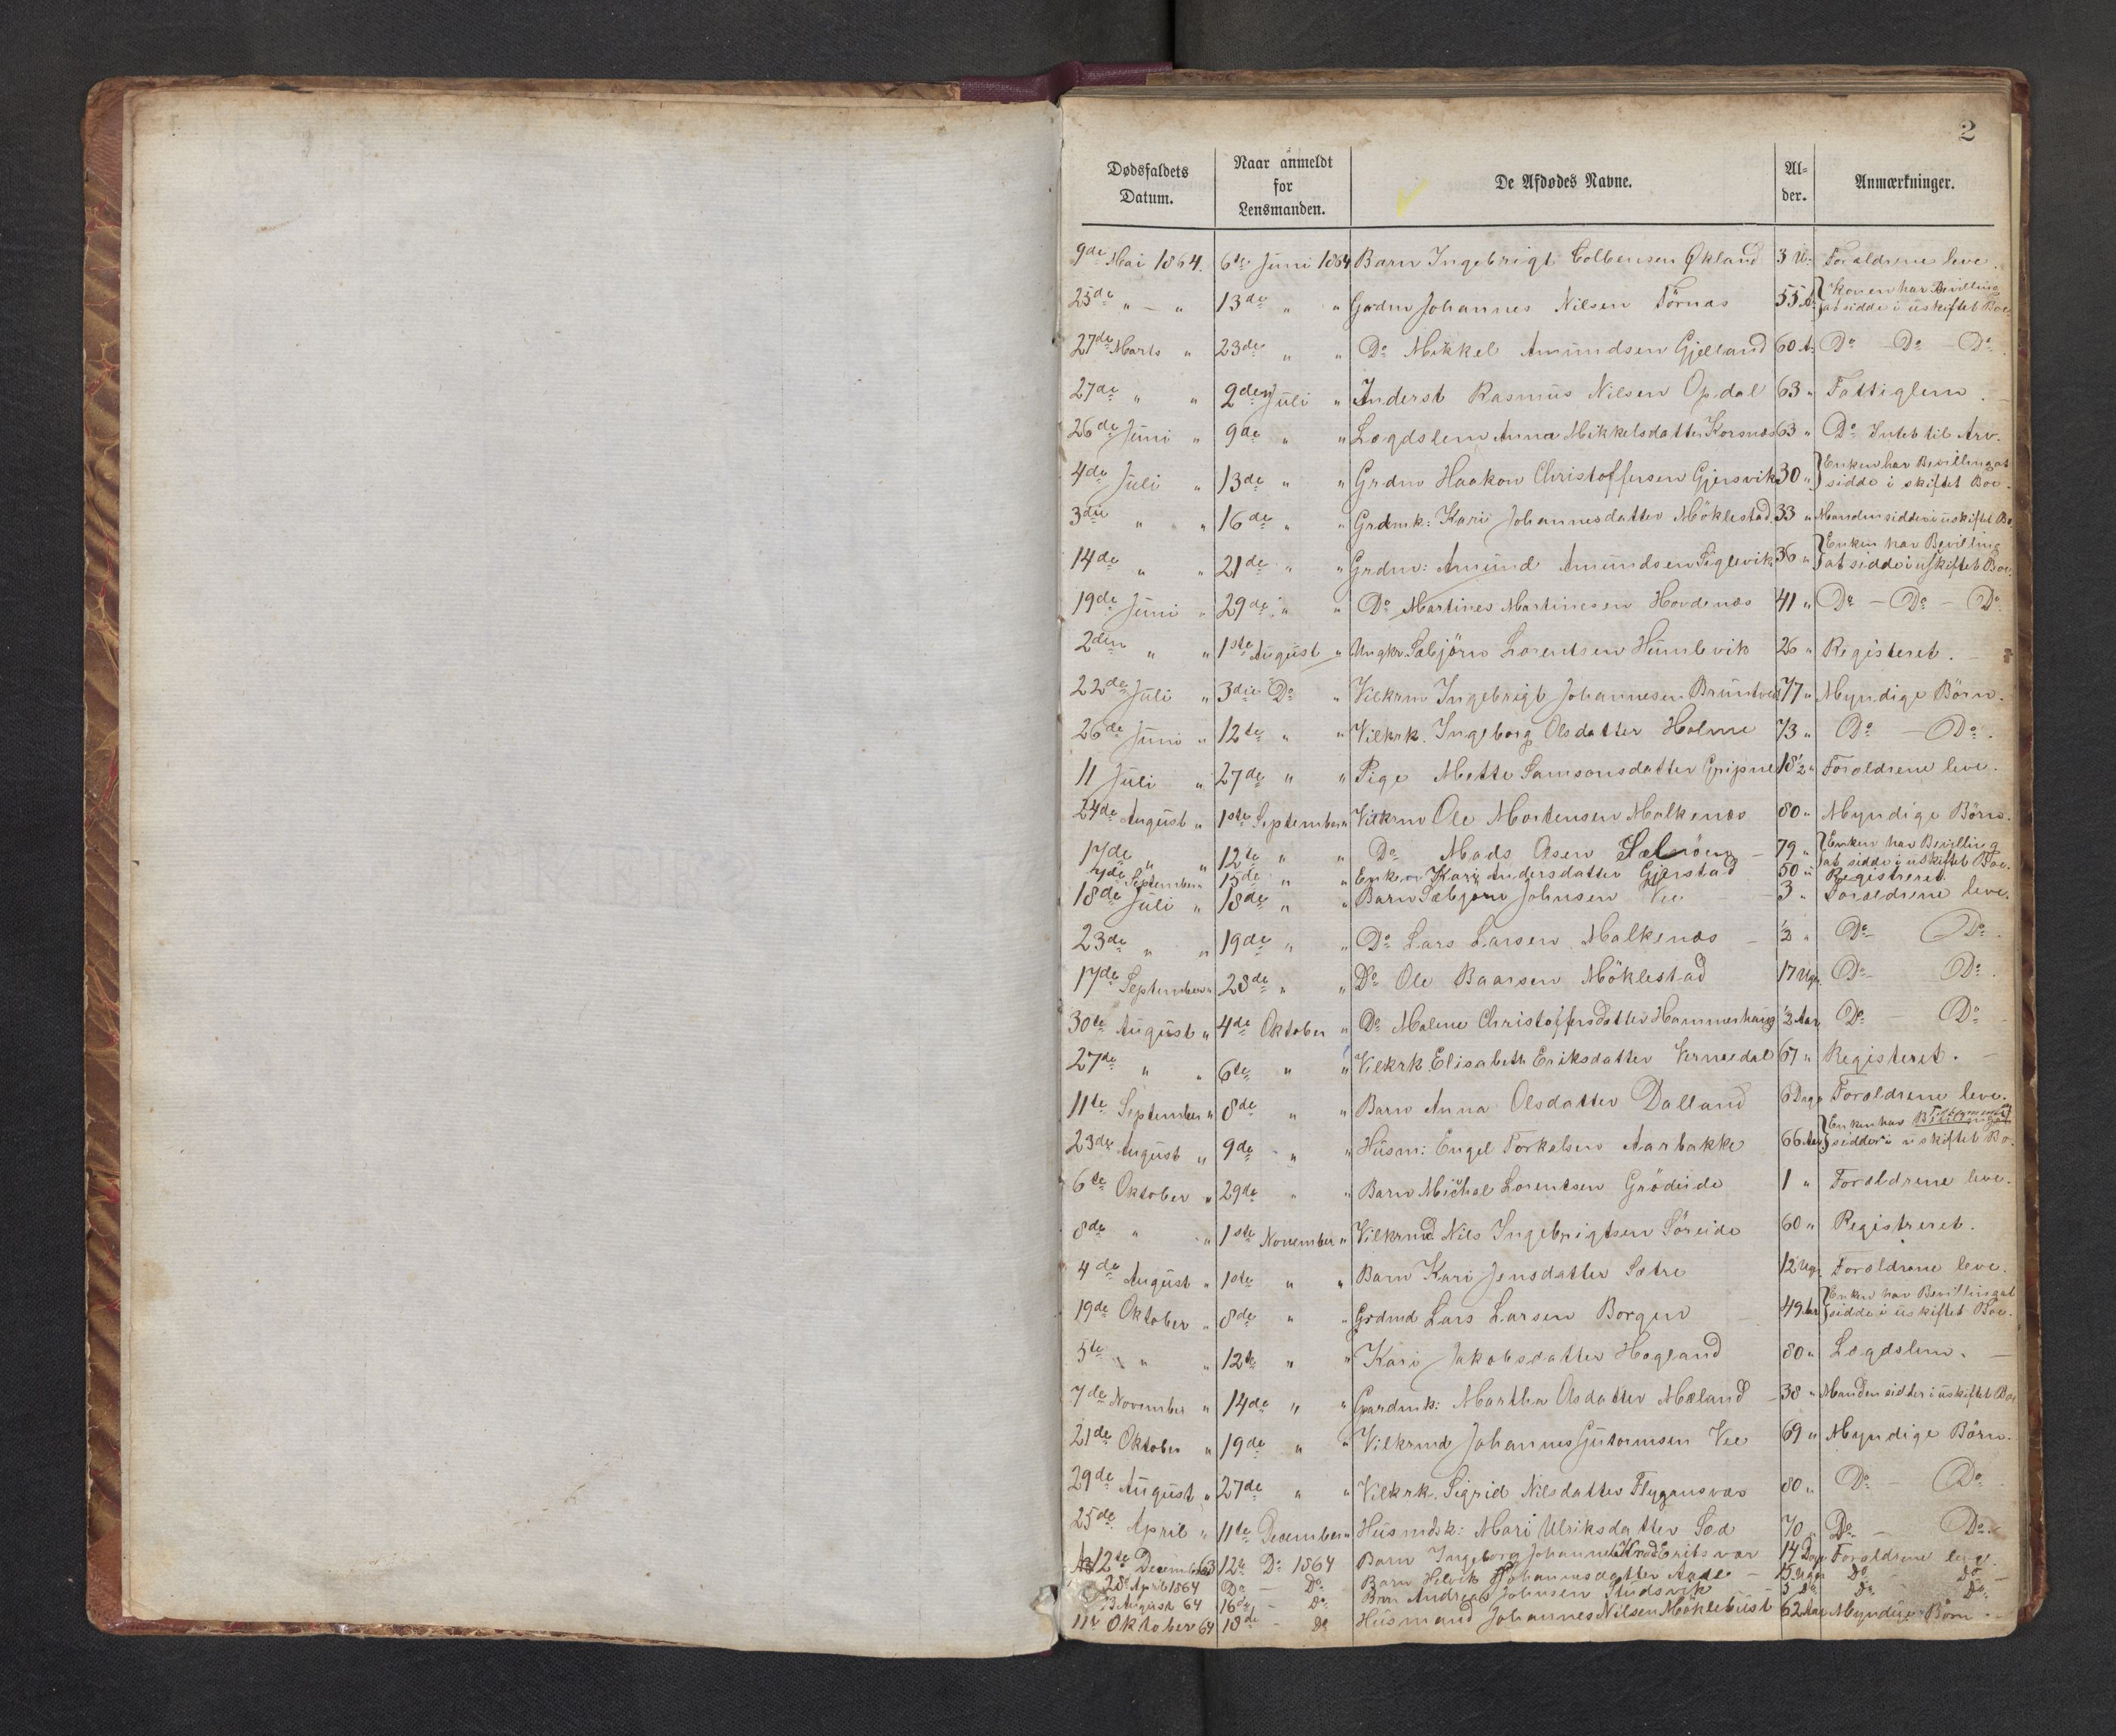 2
Dødsfaldets Datum. Naar anmeldt for Lensmanden. De Afdødes Navne. Al-der. Anmærkninger.
9de Mai 1864. 6te Juni 1864 Barn Ingebrigt Colbensen Økland 3 U. Forældrene leve.
25de " – " 13de " " Grdm Johannes Nilsen Törnæs 55 A. Konen har Bevilling
at sidde i uskiftet Boe
27de Marts " 23de " " Do Mikkel Amundsen Gjelland 60 A. Do – Do – Do
27de " " 2den Juli " Inderst Rasmus Nilsen Opdal 63 " Fattiglem.
26de Juni " 9de " " Lægdslem Anna Mikkelsdatter Korsnæs 63 " Do Intet til Arv.
4de Juli " 13de " " Grdm Haakon Christoffersen Gjersvik 30 " Enken har Bevilling at
sidde i skiftet Boe.
3die " " 16de " " Grdmk: Kari Johannesdatter Möklestad 33 " Manden sidder i uskiftet Bo
14de " " 21de " " Grdm: Amund Amundsen Siglevik 36 " Enken har Bevilling
at sidde i uskiftet Boe.
19de Juni " 29de " " Do Martines Martinesen Hovdenæs 41 " Do – Do – Do
2den " " 1ste August " Ungkr. Sæbjörn Lorentsen Humlevik 26 " Registeret.
22de Juli " 3die Do " Vilkrm Ingebrigt Johannesen Bruntved 77 " Myndige Börn.
26de Juni " 12te " " Vilkrk. Ingeborg Olsdatter Holme 73 " Do – Do.
11 Juli " 27de " " Pige Mette Samsonsdatter Gripne 18½ " Forældrene leve.
24de August " 1ste September " Vilkrm Ole Mortensen Malkenæs 80 " Myndige Börn.
17de " " 12te " " Do Mads Olsen Sælnöen – 79 " Enken har Bevilling
at sidde i uskiftet Boe.
7de September " 15de " " Enken Kari Andersdatter Gjerstad 50 " Registreret
18de Juli " 18de " " Barn Sæbjørn Johnsen Vee 3 " Forældrene leve.
23de " " 19de " " Do Lars Larsen Malkenæs – ½ " Do Do.
17de September " 28de " " Do Ole Baarsen Möklestad 17 Ugr. Do Do.
30te August " 4de Oktober " Do Malene Christoffersdatter Hammerhaug ½ Aar Do – Do
27de " " 6te " " Vilkrk. Elisabeth Eriksdatter Vernedal 67 " Registeret.
11te September " 8de " " Barn Anna Olsdatter Dalland 6 Dage Forældrene leve.
23de August " 9de " " Husm: Engel Torkelsen Aarbakke 66 Aar Enken har
sidder i uskiftet Bo.
6te Oktober " 29de " " Barn Michal Lorentsen Grödeide 1 " Forældrene leve.
8de " " 1ste November " Vilkrmd Nils Ingebrigtsen Söreide 60 " Registreret.
4de August " 1ste " " Barn Kari Jensdatter Sætre 12 Ugr. Forældrene leve.
19de Oktober " 8de " " Grdmd Lars Larsen Borgen – 49 Aar Enken har Bevilling at
sidde i uskiftet Boe.
5te " " 12te " " Kari Jakobsdatter Hogland 80 " Lægdslem.
7de November " 14de " " Gaardmk: Martha Olsdatter Mæland – 38 " Manden sidder i uskiftet Boe
21de Oktober " 19de " " Vilkrmd Johannes Gutormsen Vee 69 " Myndige Börn.
29de August " 27de " " Vilkrk. Sigrid Nilsdatter Flygansvær 80 " Do – Do
25de April " 11te December " Husmdsk: Mari Ulriksdatter Sod 70 Do – Do
12te December 63 12te Do 1864 Barn Ingeborg Eritsvær 14 Dage Forældrene leve.
28 April 1864 Do – Do Barn Helvik Johannesdatter Aadl – 15 Uger Do – Do
13 August 64 16de – Do Barn Andreas Johnsen Studsvik 5 Do Do – Do
11te Oktober 64 18de – Do Husmand Johannes Nilsen Möklebust 62 Aar Myndige Börn.